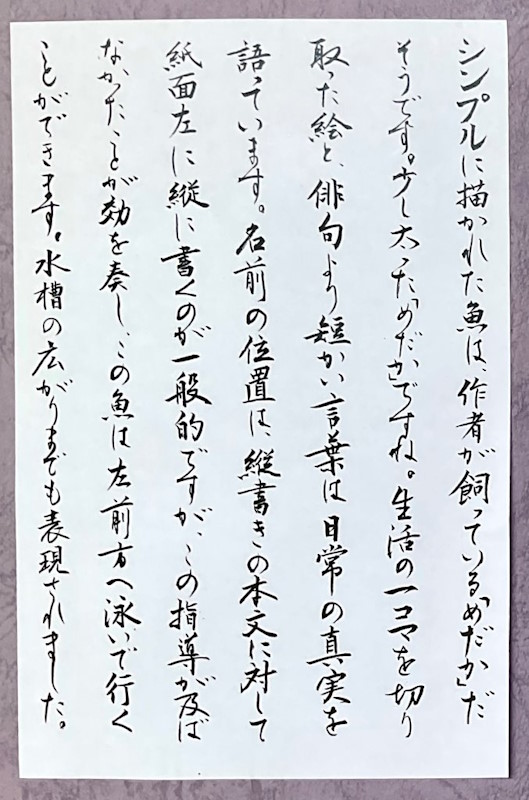 シンプルに描かれた魚は、作者が飼っている「めだか」だ
そうです。少し太った「めだか」ですね。生活の一コマを切り
取った絵と、俳句より短かい言葉は日常の真実を
語っています。名前の位置は、縦書きの本文に対して
紙面左に縦に書くのが一般的ですが、この指導が及ば
なかったことが効を奏し、この魚は左前方へ泳いで行く
ことができます。水槽の広がりまでも表現されました。